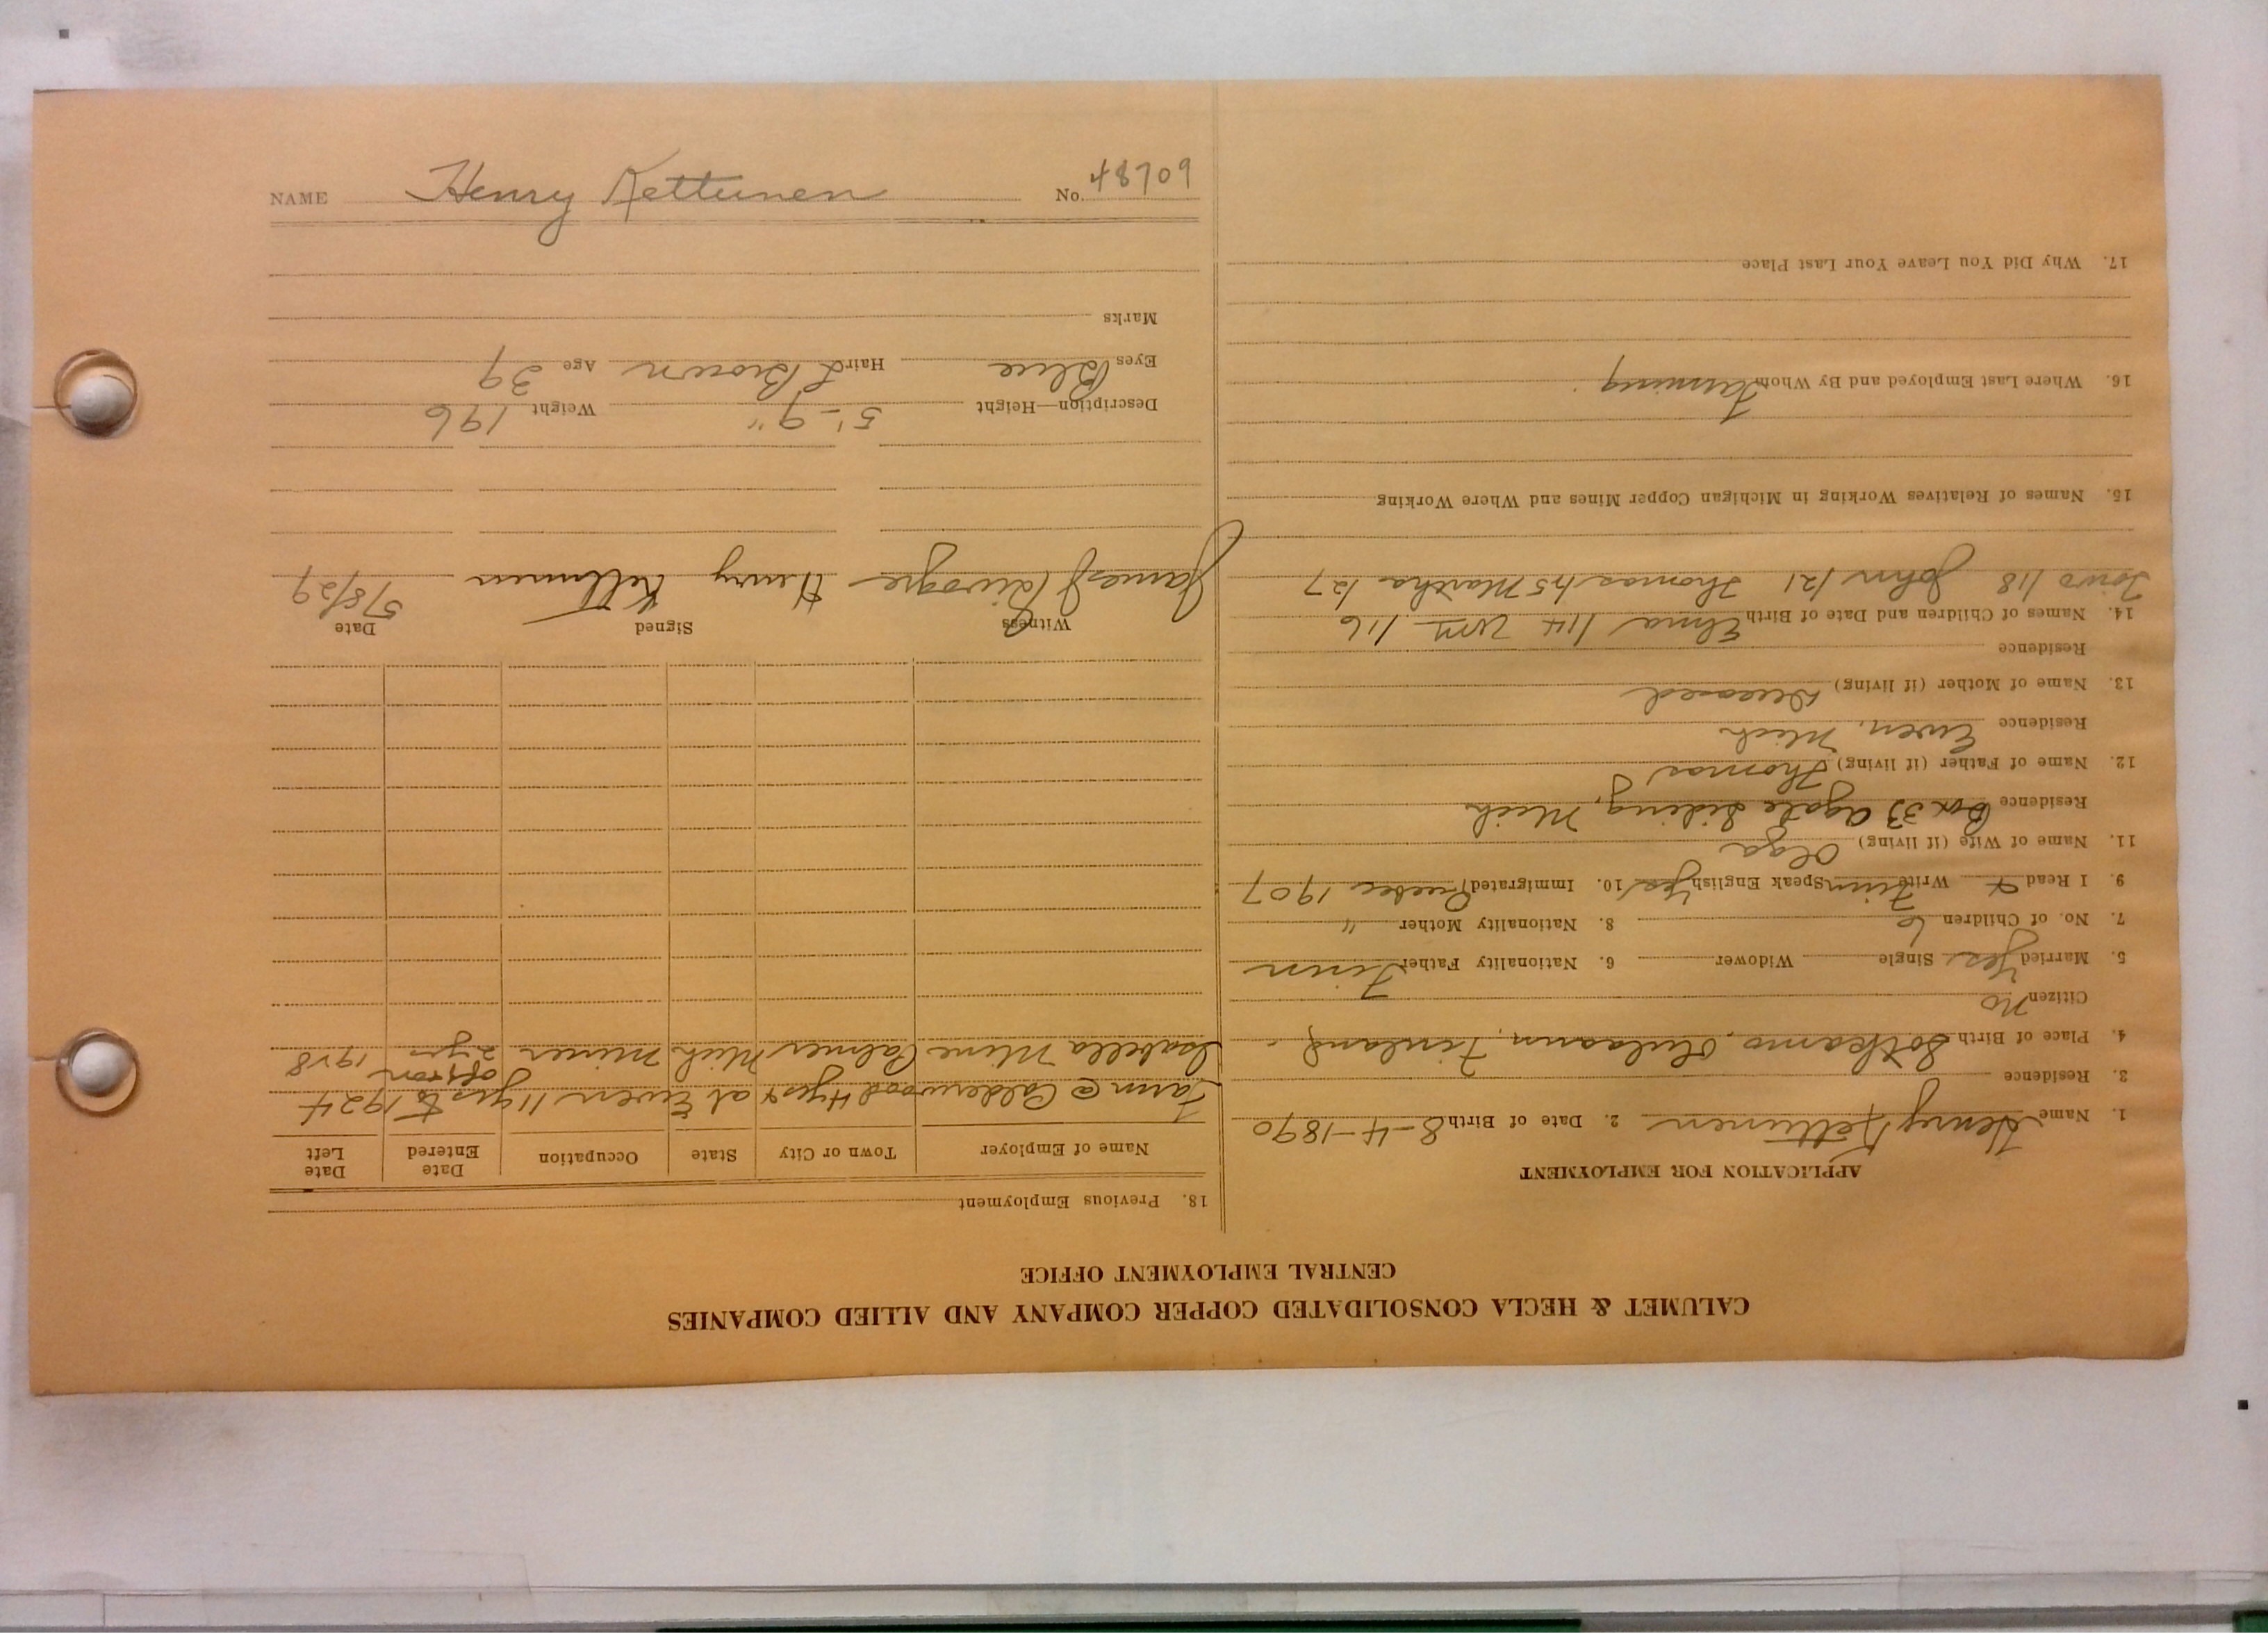 NAME Henry Kettunen No. 48709
CALUMET & HECLA CONSOLIDATED COPPER COMPANY AND ALLIED COMPANIES
CENTRAL EMPLOYMENT OFFICE
APPLICATION FOR EMPLOYMENT
1. Name Henry Kettunen 2. Date of Birth 8-4-1890
3. Residence
4. Place of Birth Sotkamo, Oulu Finland
Citizen no
5. Married Yes Single Widower 6. Nationality Father Finn
7. No. of Children 6 8. Nationality Mother "
9. I Read & Write Finn Speak English Yes 10. Immigrated Quebec 1907
11. Name of Wife (if living) Olga
Residence Box 33 Agate Siding, Mich
12. Name of Father (if living) Thomas
Residence Ewen, Mich
13. Name of Mother (if living) Deceased
Residence
14. Names of Children and Date of Birth Elma /14 Wm /16
/18 John /21 Thomas /25 Martha /27
15. Names of Relatives Working in Michigan Copper Mines and Where Working
16. Where Last Employed and By Whom Farming
17. Why Did You Leave Your Last Place
18. Previous Employment
Name of Employer Town or City State Occupation Date Entered Date Left
Farm @ Calderwood 4 yrs & at Ewen 11 yrs to 1924
off & on
Isabella Mine Palmer Mich miner 2 yrs 1928
Witness Signed Date
James J Henry Kettunen 5/8/29
Description—Height 5'-9" Weight 196
Eyes Blue Hair L Brown Age 39
Marks